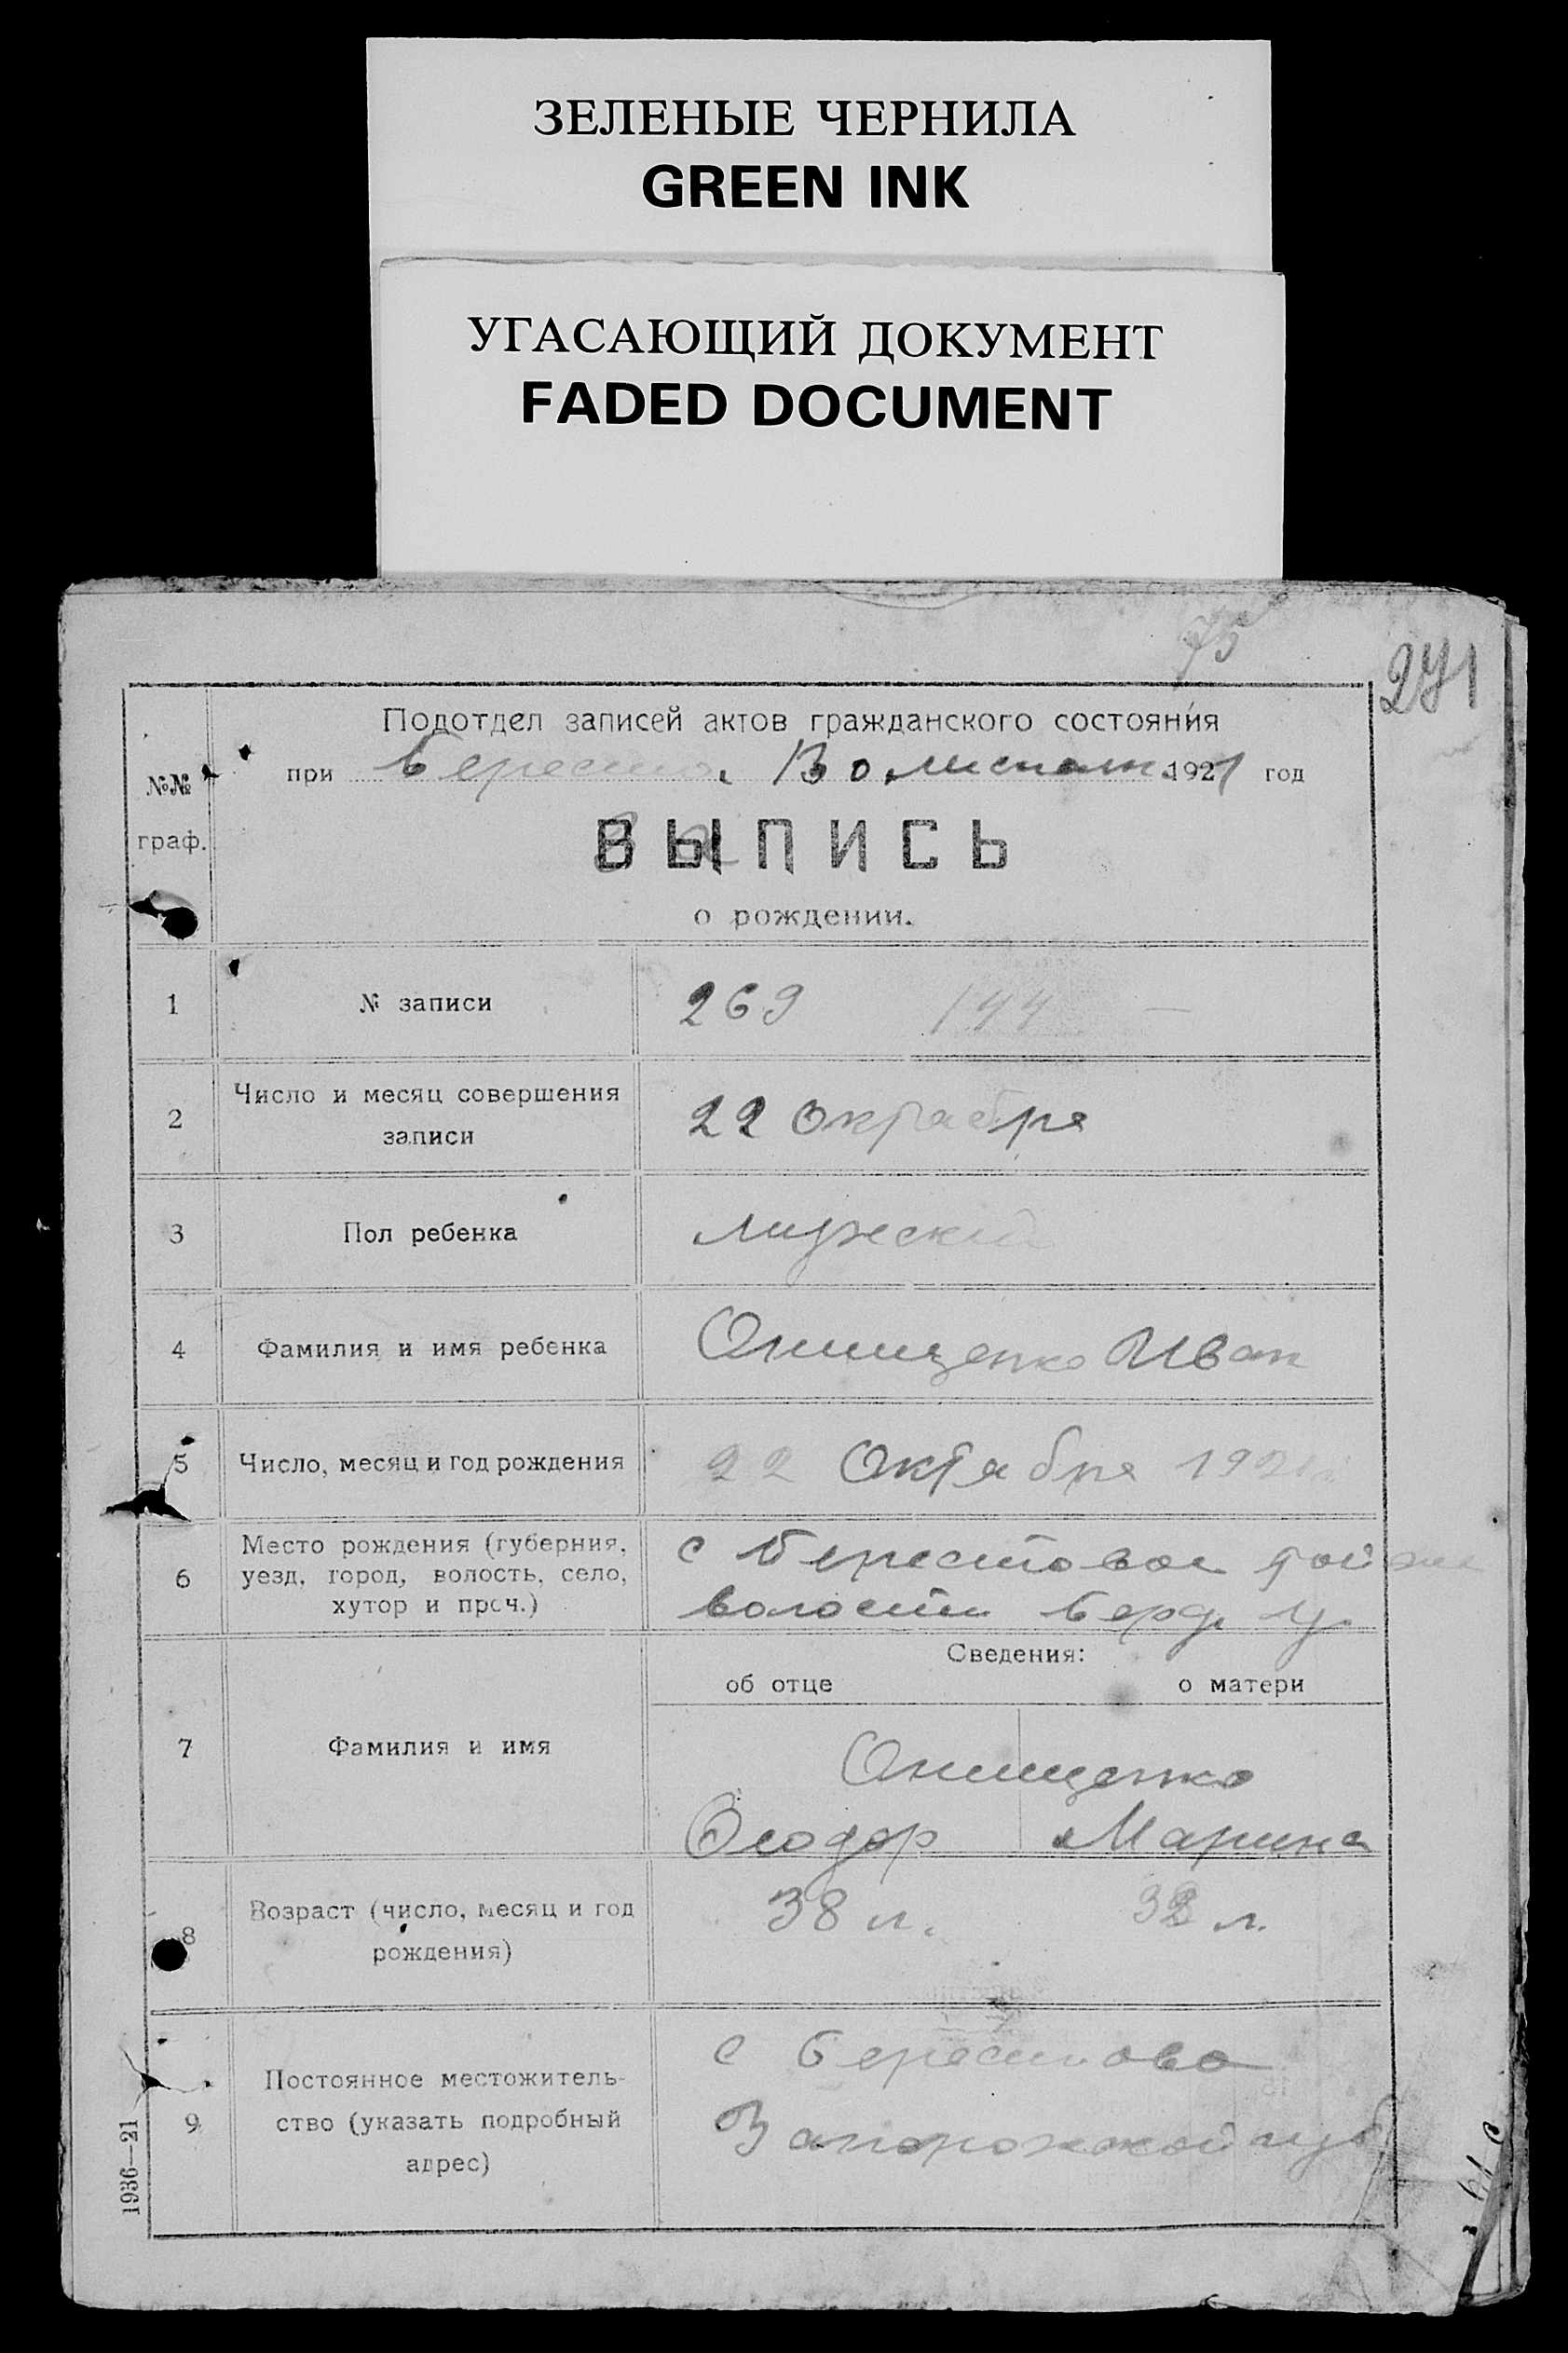 ЗЕЛЕНЫЕ ЧЕРНИЛА
GREEN INK
УГАСАЮЩИЙ ДОКУМЕНТ
FADED DOCUMENT
75
271
Подотдел записей актов гражданского состояния
при Берестов. Волисполк. 1921 год
№№
граф.
ВЫПИСЬ
о рождении.
1 № записи 269 144 —
2 Число и месяц совершения
записи 22 октября
3 Пол ребенка мужеский
4 Фамилия и имя ребенка Онищенко Иван
5 Число, месяц и год рождения 22 Октября 1921
6 Место рождения (губерния,
уезд, город, волость, село,
хутор и проч.)
с Берестовое той же
волости Берд. у.
Сведения:
об отце о матери
7 Фамилия и имя Онищенко
Феодор Марина
8 Возраст (число, месяц и год
рождения)
38 л. 32 л.
9 Постоянное местожитель-
ство (указать подробный
адрес)
с Берестово
Запорожской губ
1936—21